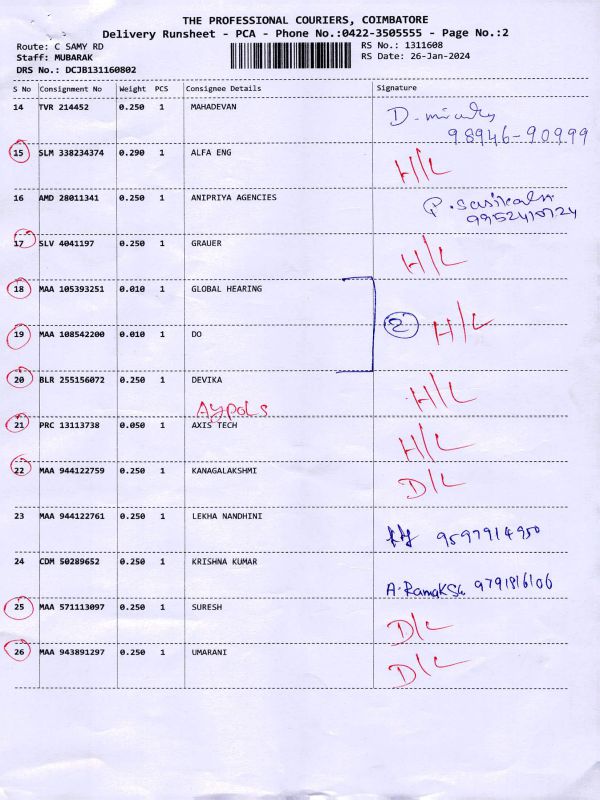 THE PROFESSIONAL COURIERS, COIMBATORE
Delivery Runsheet - PCA - Phone No.:0422-3505555 - Page No.:2
Route: C SAMY RD
RS No.: 1311608
Staff: MUBARAK
RS Date: 26-Jan-2024
DRS No.: DCJB131160802
S No Consignment No Weight PCS Consignee Details Signature
14 TVR 214452 0.250 1 MAHADEVAN
98946-90999
15 SLM 338234374 0.290 1 ALFA ENG H/L
16 AMD 28011341 0.250 1 ANIPRIYA AGENCIES P. Sasikala
17 SLV 4041197 0.250 1 GRAUER H/L
18 MAA 105393251 0.010 1 GLOBAL HEARING
19 MAA 108542200 0.010 1 DO 2 H/L
20 BLR 255156072 0.250 1 DEVIKA H/L
21 PRC 13113738 0.050 1 AXIS TECH H/L
22 MAA 944122759 0.250 1 KANAGALAKSHMI D/L
23 MAA 944122761 0.250 1 LEKHA NANDHINI 9597914950
24 CDM 50289652 0.250 1 KRISHNA KUMAR
9791816106
25 MAA 571113097 0.250 1 SURESH D/L
26 MAA 943891297 0.250 1 UMARANI D/L